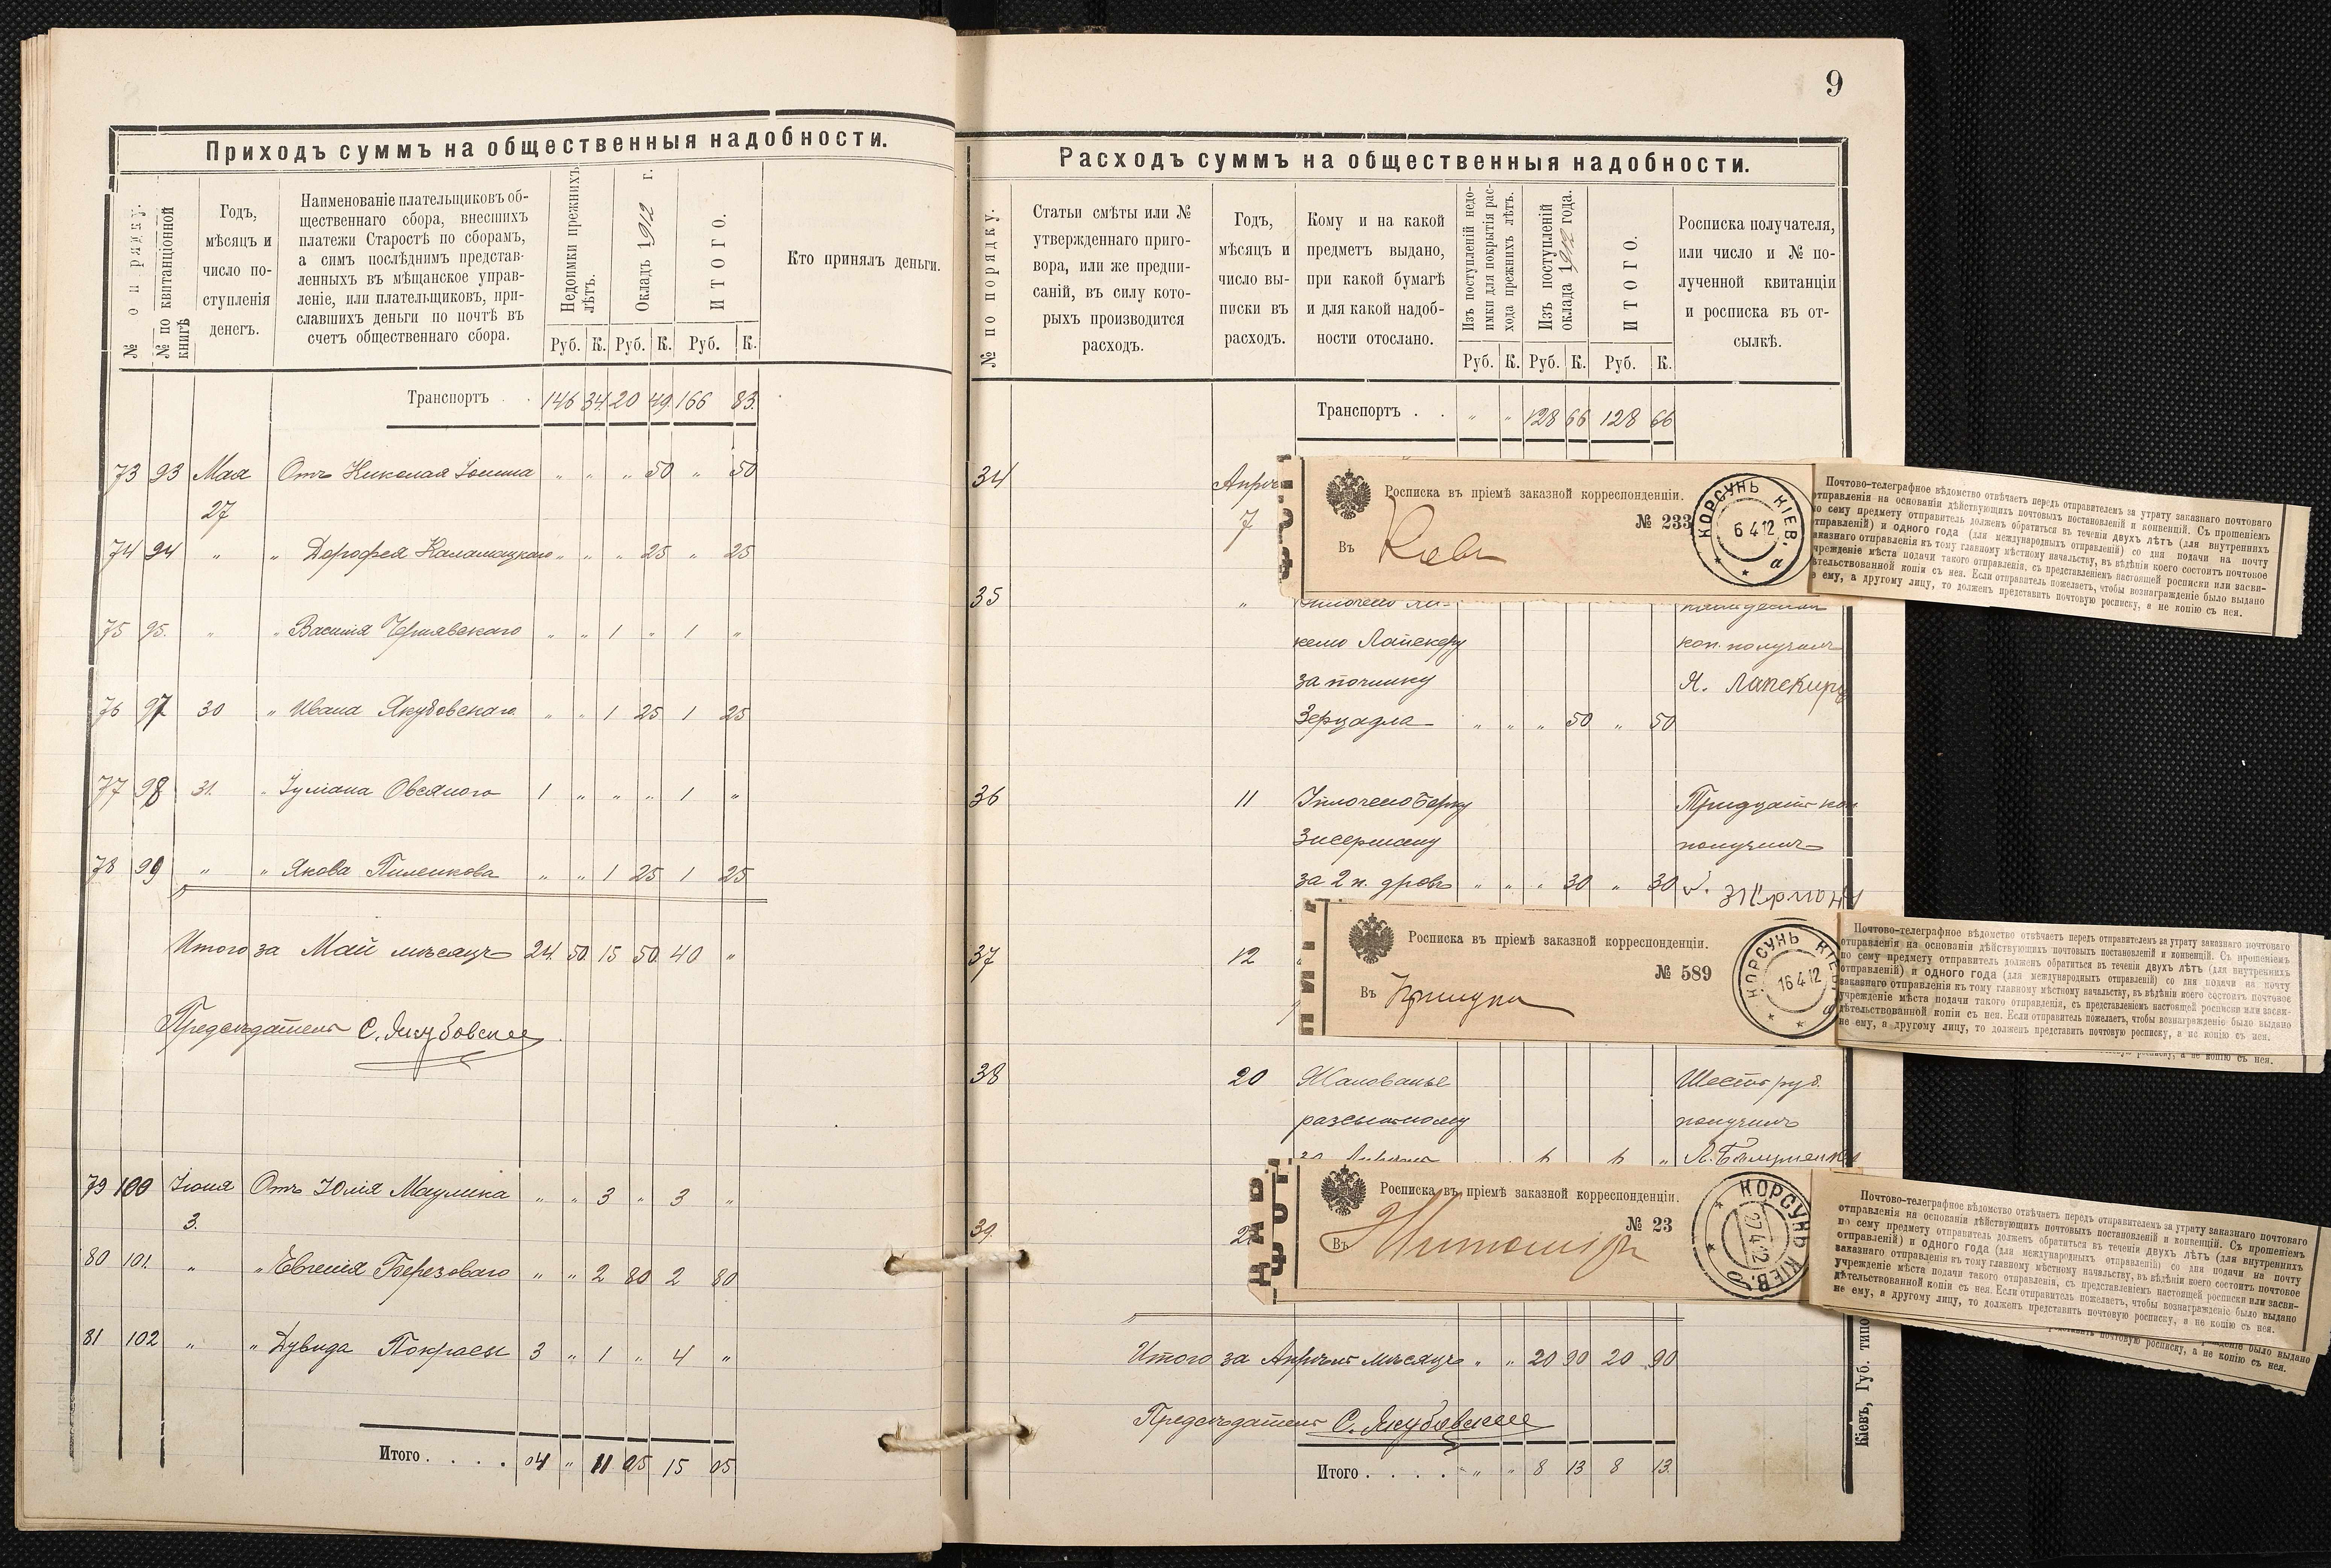 Приходъ суммъ на общественныя надобности.
№ по порядку.
№ по квитанціонной книгѣ
Годъ,
мѣсяцъ и
число по-
ступленія
денегъ.
Наименованіе плательщиковъ об-
щественнаго сбора, внесшихъ
платежи Старостѣ по сборамъ,
а симъ послѣднимъ представ-
ленныхъ въ мѣщанское управ-
леніе, или плательщиковъ, при-
славшихъ деньги по почтѣ въ
счетъ общественнаго сбора.
Недоимки прежнихъ
лѣтъ.
Окладъ 1912 г.
ИТОГО.
Кто принялъ деньги.
Руб. К. Руб. К. Руб. К.
Транспортъ . . 146 34 20 49 166 83.
73 93 Мая Отъ Николая " " " 50 " 50
27
74 94 " " Дорофея " " " 25 " 25
75 95. " " Василія Чернявскаго " " 1 " 1 "
76 97 30 " Ивана Якубовскаго " " 1 25 1 25
77 98 31. " Іуліана Овсяного 1 " " " 1 "
78 99 " " Якова Пиленкова " " 1 25 1 25
Итого за Май мѣсяцъ 24. 50. 15 50 40 "
Предсѣдатель С. Якубовскій
79 100 Іюня Отъ Юлія " " 3 " 3 "
3.
80 101. " " Евгенія Березоваго " " 2 80 2 80
81 102 " " Дувида Покрасы 3 " 1 " 4 "
Итого . . . . 04 " 11 05 15 05
9
Расходъ суммъ на общественныя надобности.
№ по порядку.
Статьи смѣты или №
утвержденнаго приго-
вора, или же предпи-
саній, въ силу кото-
рыхъ производится
расходъ.
Годъ,
мѣсяцъ и
число вы-
писки въ
расходъ.
Кому и на какой
предметъ выдано,
при какой бумагѣ
и для какой надоб-
ности отослано.
Изъ поступленій недо-
имки для покрытія рас-
хода прежнихъ лѣтъ.
Изъ поступленій
оклада 1912 года.
ИТОГО.
Росписка получателя,
или число и № по-
лученной квитанціи
и росписка въ от-
сылкѣ.
Руб. К. Руб. К. Руб. К.
Транспортъ . . " " 128 66 128 66
34 Апрѣ
7
Росписка въ пріемѣ заказной корреспонденціи.
№ 233
Въ Кіевъ
КОРСУНЬ КІЕВ.
6 4 12
а
Почтово-телеграфное вѣдомство отвѣчаетъ передъ отправителемъ за утрату заказнаго почтоваго
отправленія на основаніи дѣйствующихъ почтовыхъ постановленій и конвенцій. Съ прошеніемъ
по сему предмету отправитель долженъ обратиться въ теченіи двухъ лѣтъ (для внутреннихъ
отправленій) и одного года (для международныхъ отправленій) со дня подачи на почту
заказнаго отправленія къ тому главному мѣстному начальству, въ вѣдѣніи коего состоитъ почтовое
учрежденіе мѣста подачи такого отправленія, съ представленіемъ настоящей росписки или засви-
дѣтельствованной копіи съ нея. Если отправитель пожелаетъ, чтобы вознагражденіе было выдано
не ему, а другому лицу, то долженъ представить почтовую росписку, а не копію съ нея.
35 "
Лапекеру коп. получилъ
за починку Я. Лапекиръ
Зерцадла " " " 50 " 50
36 11 Уплочено Берку Тридцать коп
Зисерману получилъ
за 2 п. дровъ " " " 30 " 30
37 12
Росписка въ пріемѣ заказной корреспонденціи.
№ 589
Въ
КОРСУНЬ КІЕВ.
16 4 12
Почтово-телеграфное вѣдомство отвѣчаетъ передъ отправителемъ за утрату заказнаго почтоваго
отправленія на основаніи дѣйствующихъ почтовыхъ постановленій и конвенцій. Съ прошеніемъ
по сему предмету отправитель долженъ обратиться въ теченіи двухъ лѣтъ (для внутреннихъ
отправленій) и одного года (для международныхъ отправленій) со дня подачи на почту
заказнаго отправленія къ тому главному мѣстному начальству, въ вѣдѣніи коего состоитъ почтовое
учрежденіе мѣста подачи такого отправленія, съ представленіемъ настоящей росписки или засви-
дѣтельствованной копіи съ нея. Если отправитель пожелаетъ, чтобы вознагражденіе было выдано
не ему, а другому лицу, то долженъ представить почтовую росписку, а не копію съ нея.
росписку, а не копію съ нея.
38 20 Жалованье Шесть руб.
разсыльному получилъ
за Апрѣль " " 6 " 6 "
39.
Росписка въ пріемѣ заказной корреспонденціи.
№ 23
Въ Житоміръ
КОРСУНЬ КІЕВ.
27 4 12
Почтово-телеграфное вѣдомство отвѣчаетъ передъ отправителемъ за утрату заказнаго почтоваго
отправленія на основаніи дѣйствующихъ почтовыхъ постановленій и конвенцій. Съ прошеніемъ
по сему предмету отправитель долженъ обратиться въ теченіи двухъ лѣтъ (для внутреннихъ
отправленій) и одного года (для международныхъ отправленій) со дня подачи на почту
заказнаго отправленія къ тому главному мѣстному начальству, въ вѣдѣніи коего состоитъ почтовое
учрежденіе мѣста подачи такого отправленія, съ представленіемъ настоящей росписки или засви-
дѣтельствованной копіи съ нея. Если отправитель пожелаетъ, чтобы вознагражденіе было выдано
не ему, а другому лицу, то долженъ представить почтовую росписку, а не копію съ нея.
было выдано
почтовую росписку, а не копію съ нея.
Итого за Апрѣль мѣсяцъ " " 20 90 20 90
Предсѣдатель С. Якубовскій
Итого . . . . " " 8 13 8 13.
Кіевъ, Губ. типо